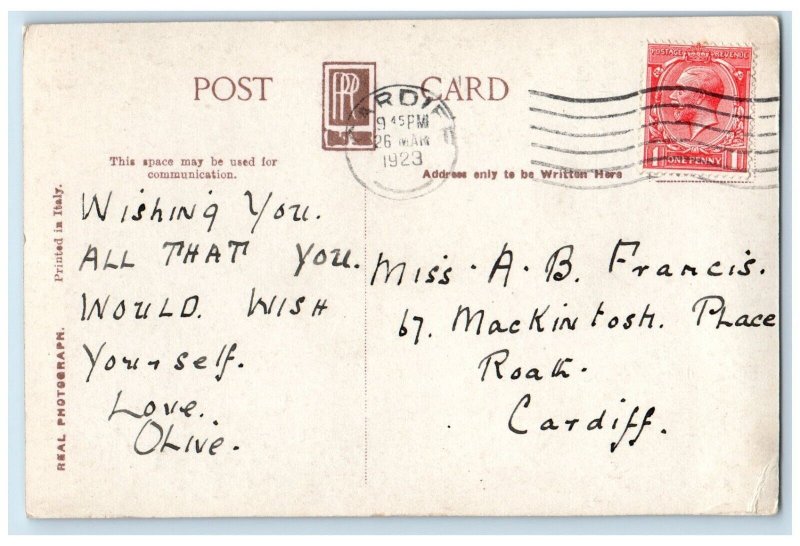 POST CARD
PRP
CARDIFF
9 45 PM
26 MAR
1923
POSTAGE REVENUE
1 ONE PENNY 1
This space may be used for
communication.
Address only to be Written Here
Printed in Italy.
REAL PHOTOGRAPH.
Wishing You.
ALL THAT You.
WOULD. WISH
Yourself.
Love.
OLive.
Miss. A. B. Francis.
67. Mackintosh. Place
Roath.
Cardiff.